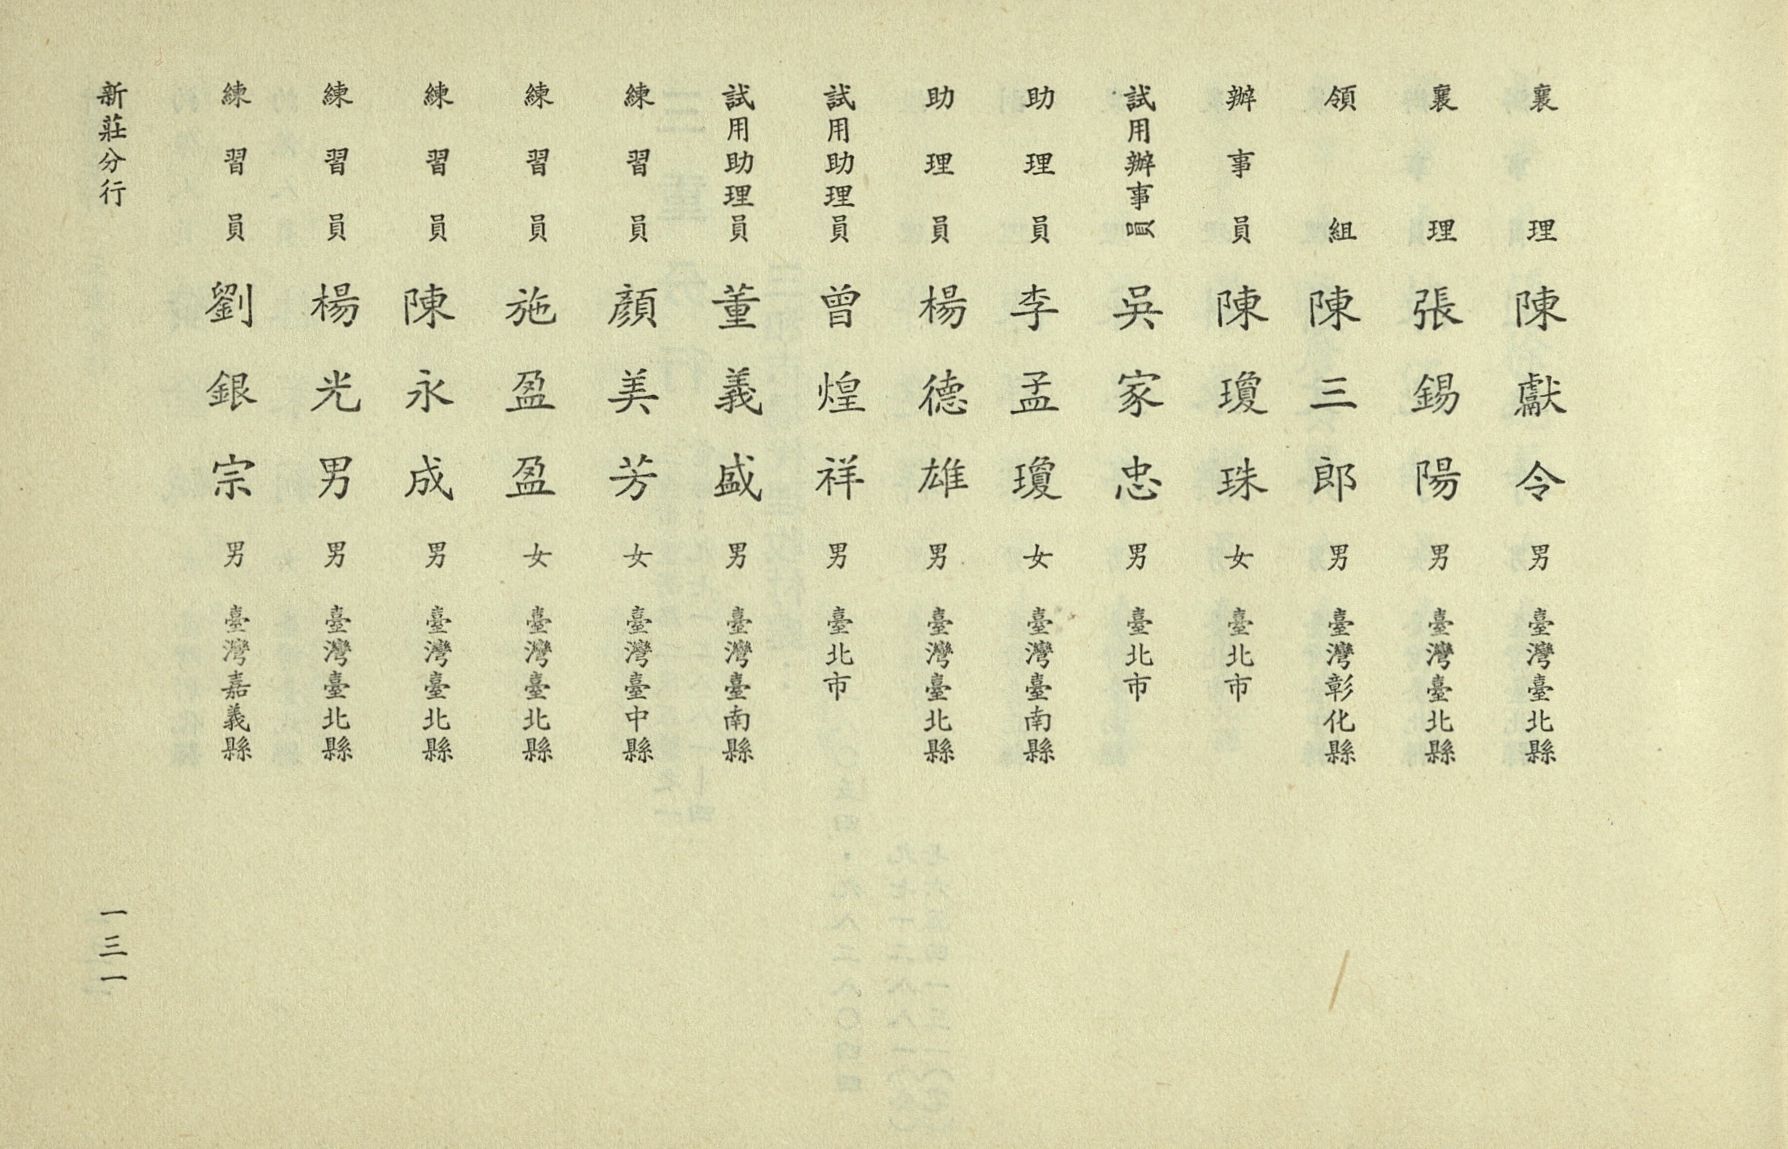 襄理陳獻令男臺灣臺北縣
襄理張錫陽男臺灣臺北縣
領組陳三郎男臺灣彰化縣
辦事員陳瓊珠女臺北市
試用辦事員吳家忠男臺北市
助理員李孟瓊女臺灣臺南縣
助理員楊德雄男臺灣臺北縣
試用助理員曾煌祥男臺北市
試用助理員董義盛男臺灣臺南縣
練習員顏美芳女臺灣臺中縣
練習員施盈盈女臺灣臺北縣
練習員陳永成男臺灣臺北縣
練習員楊光男男臺灣臺北縣
練習員劉銀宗男臺灣嘉義縣
新莊分行
一三一